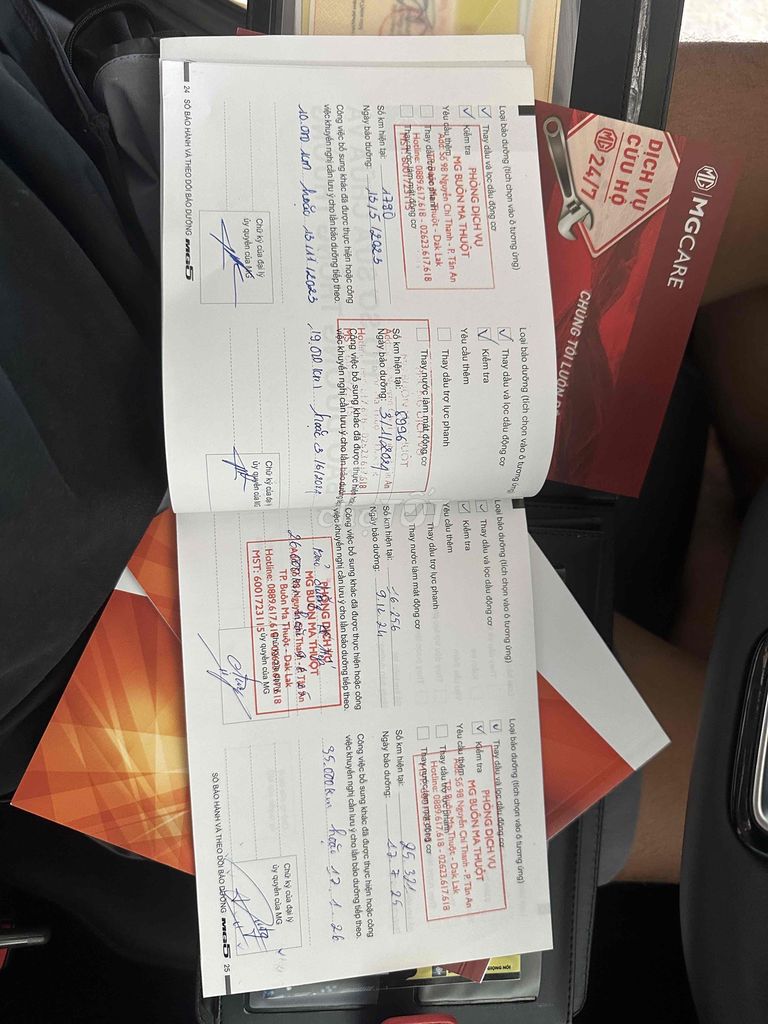 MG | MGCARE
DỊCH VỤ
CỨU HỘ
MG 24/7
Loại bảo dưỡng (tích chọn vào ô tương ứng)
Thay dầu và lọc dầu động cơ
Kiểm tra
Yêu cầu thêm
Thay dầu trợ lực phanh
Thay nước làm mát động cơ
PHÒNG DỊCH VỤ
MG BUÔN MA THUỘT
Add: Số 9B Nguyễn Chí Thanh - P. Tân An
TP. Buôn Ma Thuột - Dak Lak
Hotline: 0889.617.618 - 02623.617.618
MST: 6001723115
Số km hiện tại: 1780
Ngày bảo dưỡng: 13/5/2023
Công việc bổ sung khác đã được thực hiện hoặc công
việc khuyến nghị cần lưu ý cho lần bảo dưỡng tiếp theo.
10.000 km hoặc 13/11/2023
Chữ ký của đại lý
ủy quyền của MG
24 SỔ BẢO HÀNH VÀ THEO DÕI BẢO DƯỠNG MG5
Loại bảo dưỡng (tích chọn vào ô tương ứng)
Thay dầu và lọc dầu động cơ
Kiểm tra
Yêu cầu thêm
Thay dầu trợ lực phanh
Thay nước làm mát động cơ
Số km hiện tại: 8996
Ngày bảo dưỡng:
Công việc bổ sung khác đã được thực hiện
việc khuyến nghị cần lưu ý cho lần bảo dưỡng
19.000 km hoặc
Chữ ký của đại lý
ủy quyền của MG
Loại bảo dưỡng (tích chọn vào ô tương ứng)
Thay dầu và lọc dầu động cơ
Kiểm tra
Yêu cầu thêm
Thay dầu trợ lực phanh
Thay nước làm mát động cơ
Số km hiện tại: 16.256
Ngày bảo dưỡng: 9.12.24
Công việc bổ sung khác đã được thực hiện hoặc công
việc khuyến nghị cần lưu ý cho lần bảo dưỡng tiếp theo.
PHÒNG DỊCH VỤ
MG BUÔN MA THUỘT
TP. Buôn Ma Thuột - Dak Lak
Hotline: 0889.617.618
MST: 6001723115
ủy quyền của MG
Loại bảo dưỡng (tích chọn vào ô tương ứng)
Thay dầu và lọc dầu động cơ
Kiểm tra
Yêu cầu thêm
Thay dầu trợ lực phanh
Thay nước làm mát động cơ
PHÒNG DỊCH VỤ
MG BUÔN MA THUỘT
Add: Số 9B Nguyễn Chí Thanh - P. Tân An
TP. Buôn Ma Thuột - Dak Lak
Hotline: 0889.617.618 - 02623.617.618
Số km hiện tại: 25.321
Ngày bảo dưỡng: 17.7.25
Công việc bổ sung khác đã được thực hiện hoặc công
việc khuyến nghị cần lưu ý cho lần bảo dưỡng tiếp theo.
35.000 km hoặc 17.1.26
Chữ ký của đại lý
ủy quyền của MG
SỔ BẢO HÀNH VÀ THEO DÕI BẢO DƯỠNG MG5 25